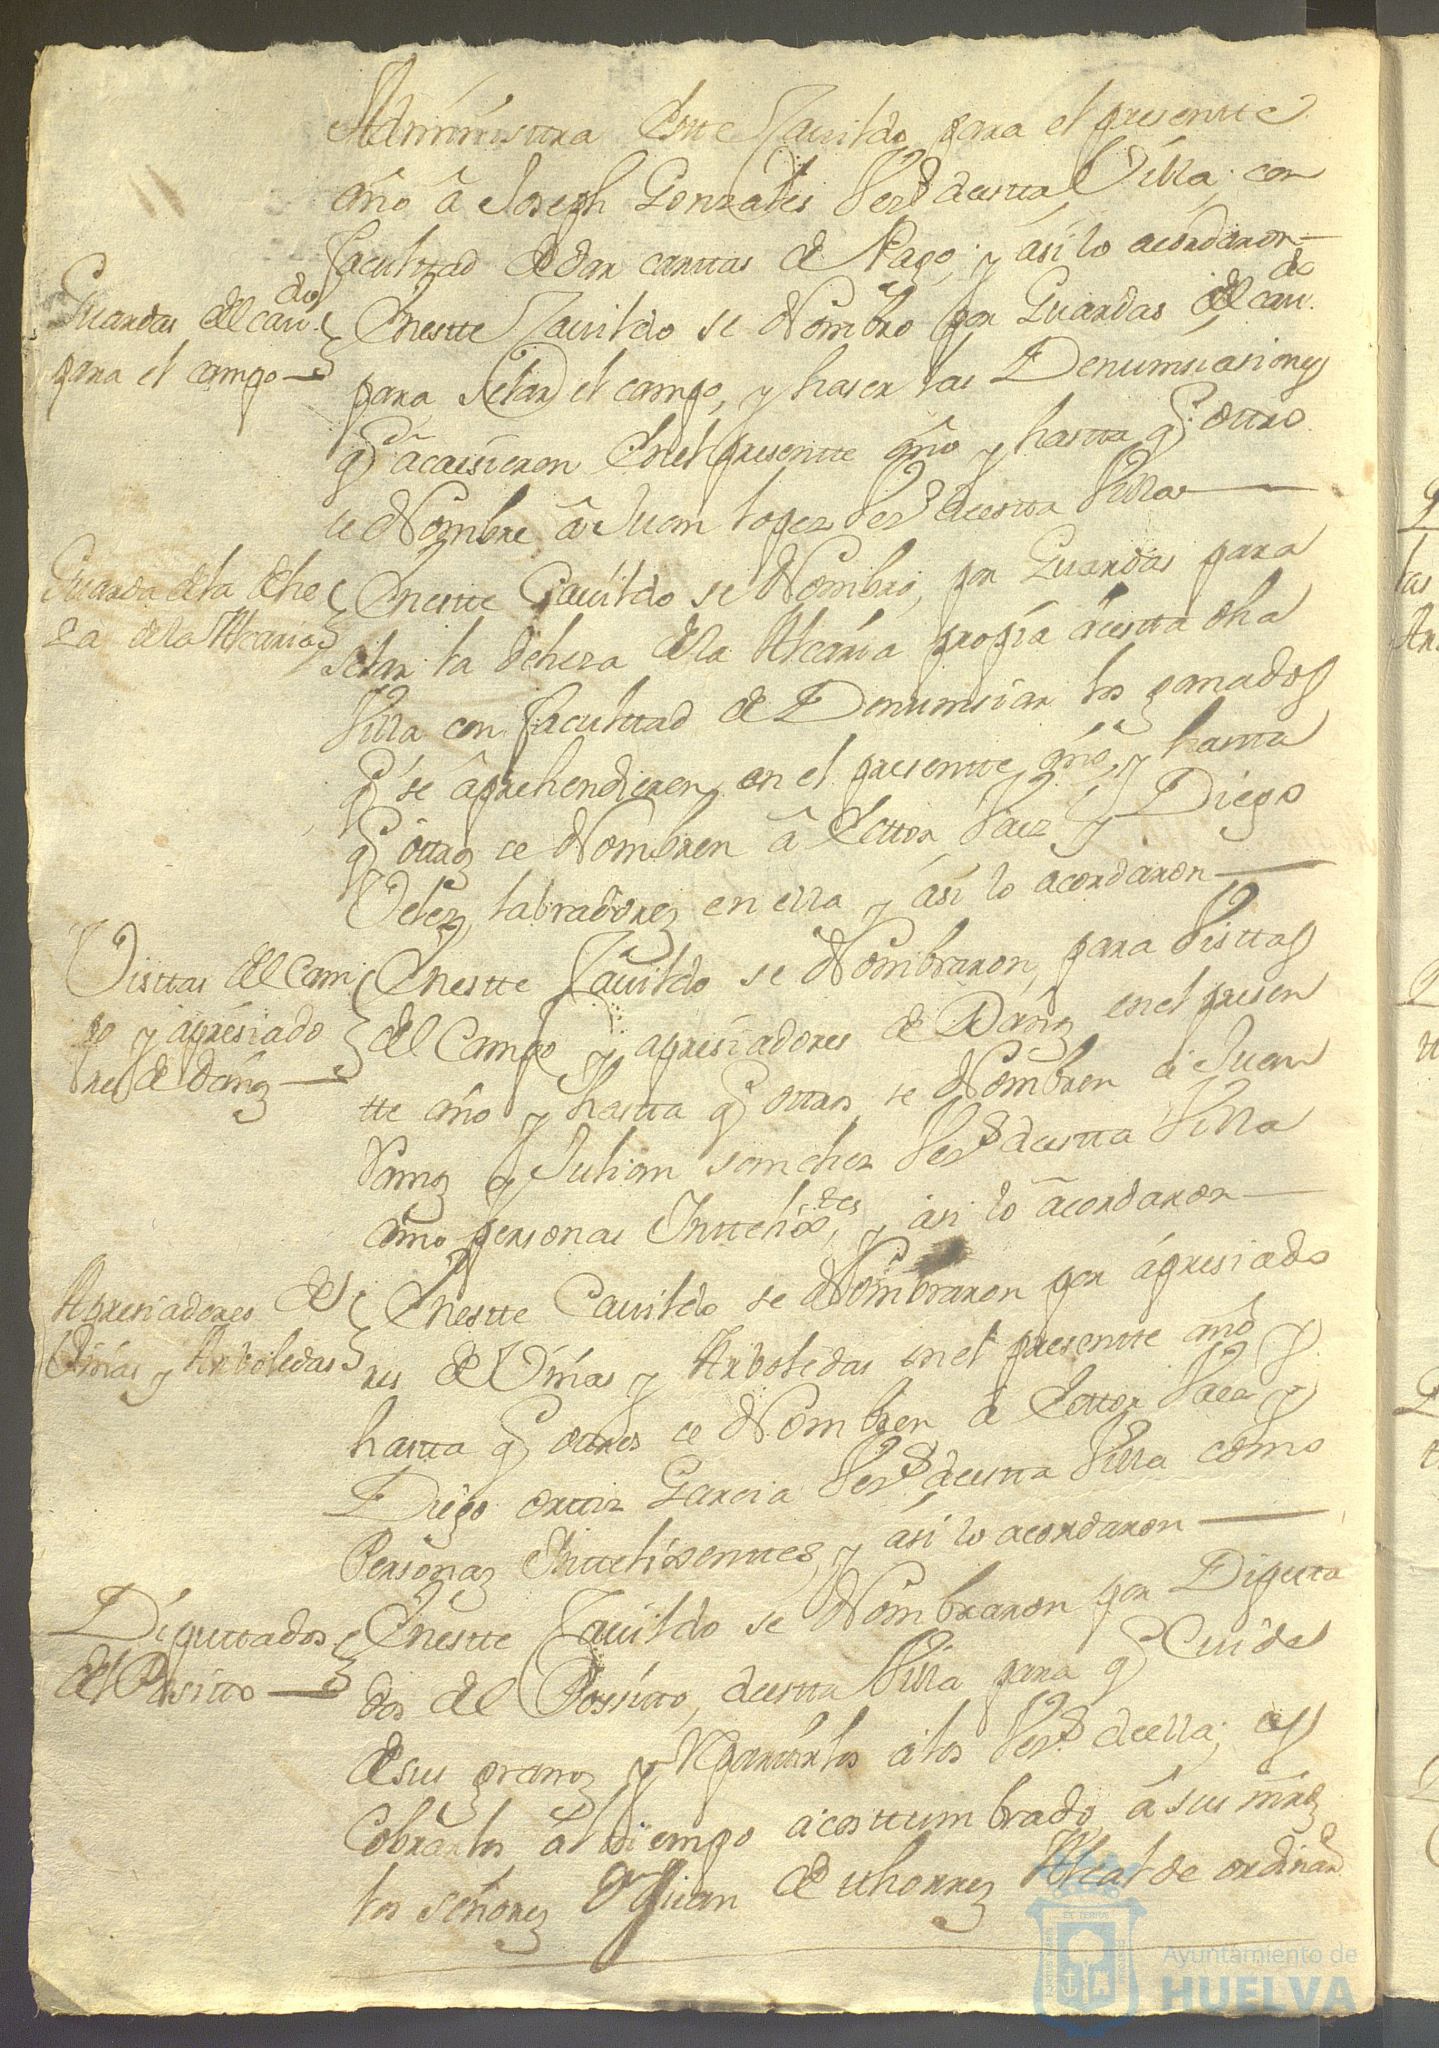 Administra Este Cavildo para el presentte
año â Joseph Gonzales Vez.º destta Villa, con
facultad de dar carttas de Pago, y âsí lo acordaron
Guardas del cavdo
para el campo
Enestte Cavildo se Nombró por Guardas del cavdo
para Selar el campo, y haser las Denunsiasiones
q̃ âcaesieren Enel presentte año y hastta q̃ ottro
se Nombre â Juan lopez Vez.º destta Villa
Guarda dela dehe
za dela Alcaria
Enestte Cavildo se Nombró, por Guardas para
selar la dehesa dela Alcaria propia âestta dha
Villa con facultad de Denunsiar los ganados
q̃ se âprehendieren en el presentte año, y hastta
q̃ ôttros se Nombren â Cottor Vaez y Diego
Velez, labradores en ella y âsí lo acordaron
Visttas del Cam
po y apresiado
res de daños
Enestte Cavildo se Nombraron, para Visttas
del Campo y apresiadores de Daños enel presen
tte año y hastta q̃ ottros se Nombren â Juan
Ramos y Julian sanchez Vez.s destta Villa
como personas Inttelixtes, y âsí lo âcordaron
Apresiadores de
Viñas y Arboledas
Enestte Cavildo se Nombraron por âpresiado
res de Viñas y Arboledas enel presentte año y
hastta q̃ ottros se Nombren â Cottor Vaez y
Diego orttiz Garcia Vez.s destta Villa como
Personas Inttelixenttes, y âsí lo acordaron
Diputtados
del Positto
Enestte Cavildo se Nombraron por Diputta
dos del Possitto, destta Villa para q̃ Cuiden
desus granos y Repartirlos âlos Vez.s deella, y
Cobrarlos âl tiempo acosttumbrado â sus mrds
los señores Dn Juan de tthorres Alcalde ordinario
Ayuntamiento de
HUELVA